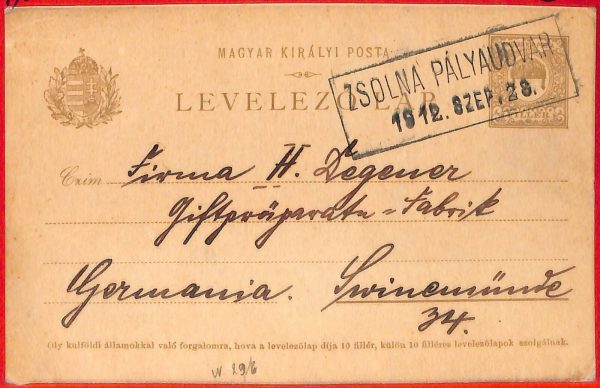 MAGYAR KIRÁLYI POSTA
LEVELEZŐLAP
ZSOLNA PÁLYAUDVAR
1912. SZEP. 28.
FILLÉR
Czim
Firma H. Degener
Giftpräparate = Fabrik
Germania. Swinemünde
34.
Oly külföldi államokkal való forgalomra, hova a levelezőlap dija 10 fillér, külön 10 filléres levelezőlapok szolgálnak.
W 29/6